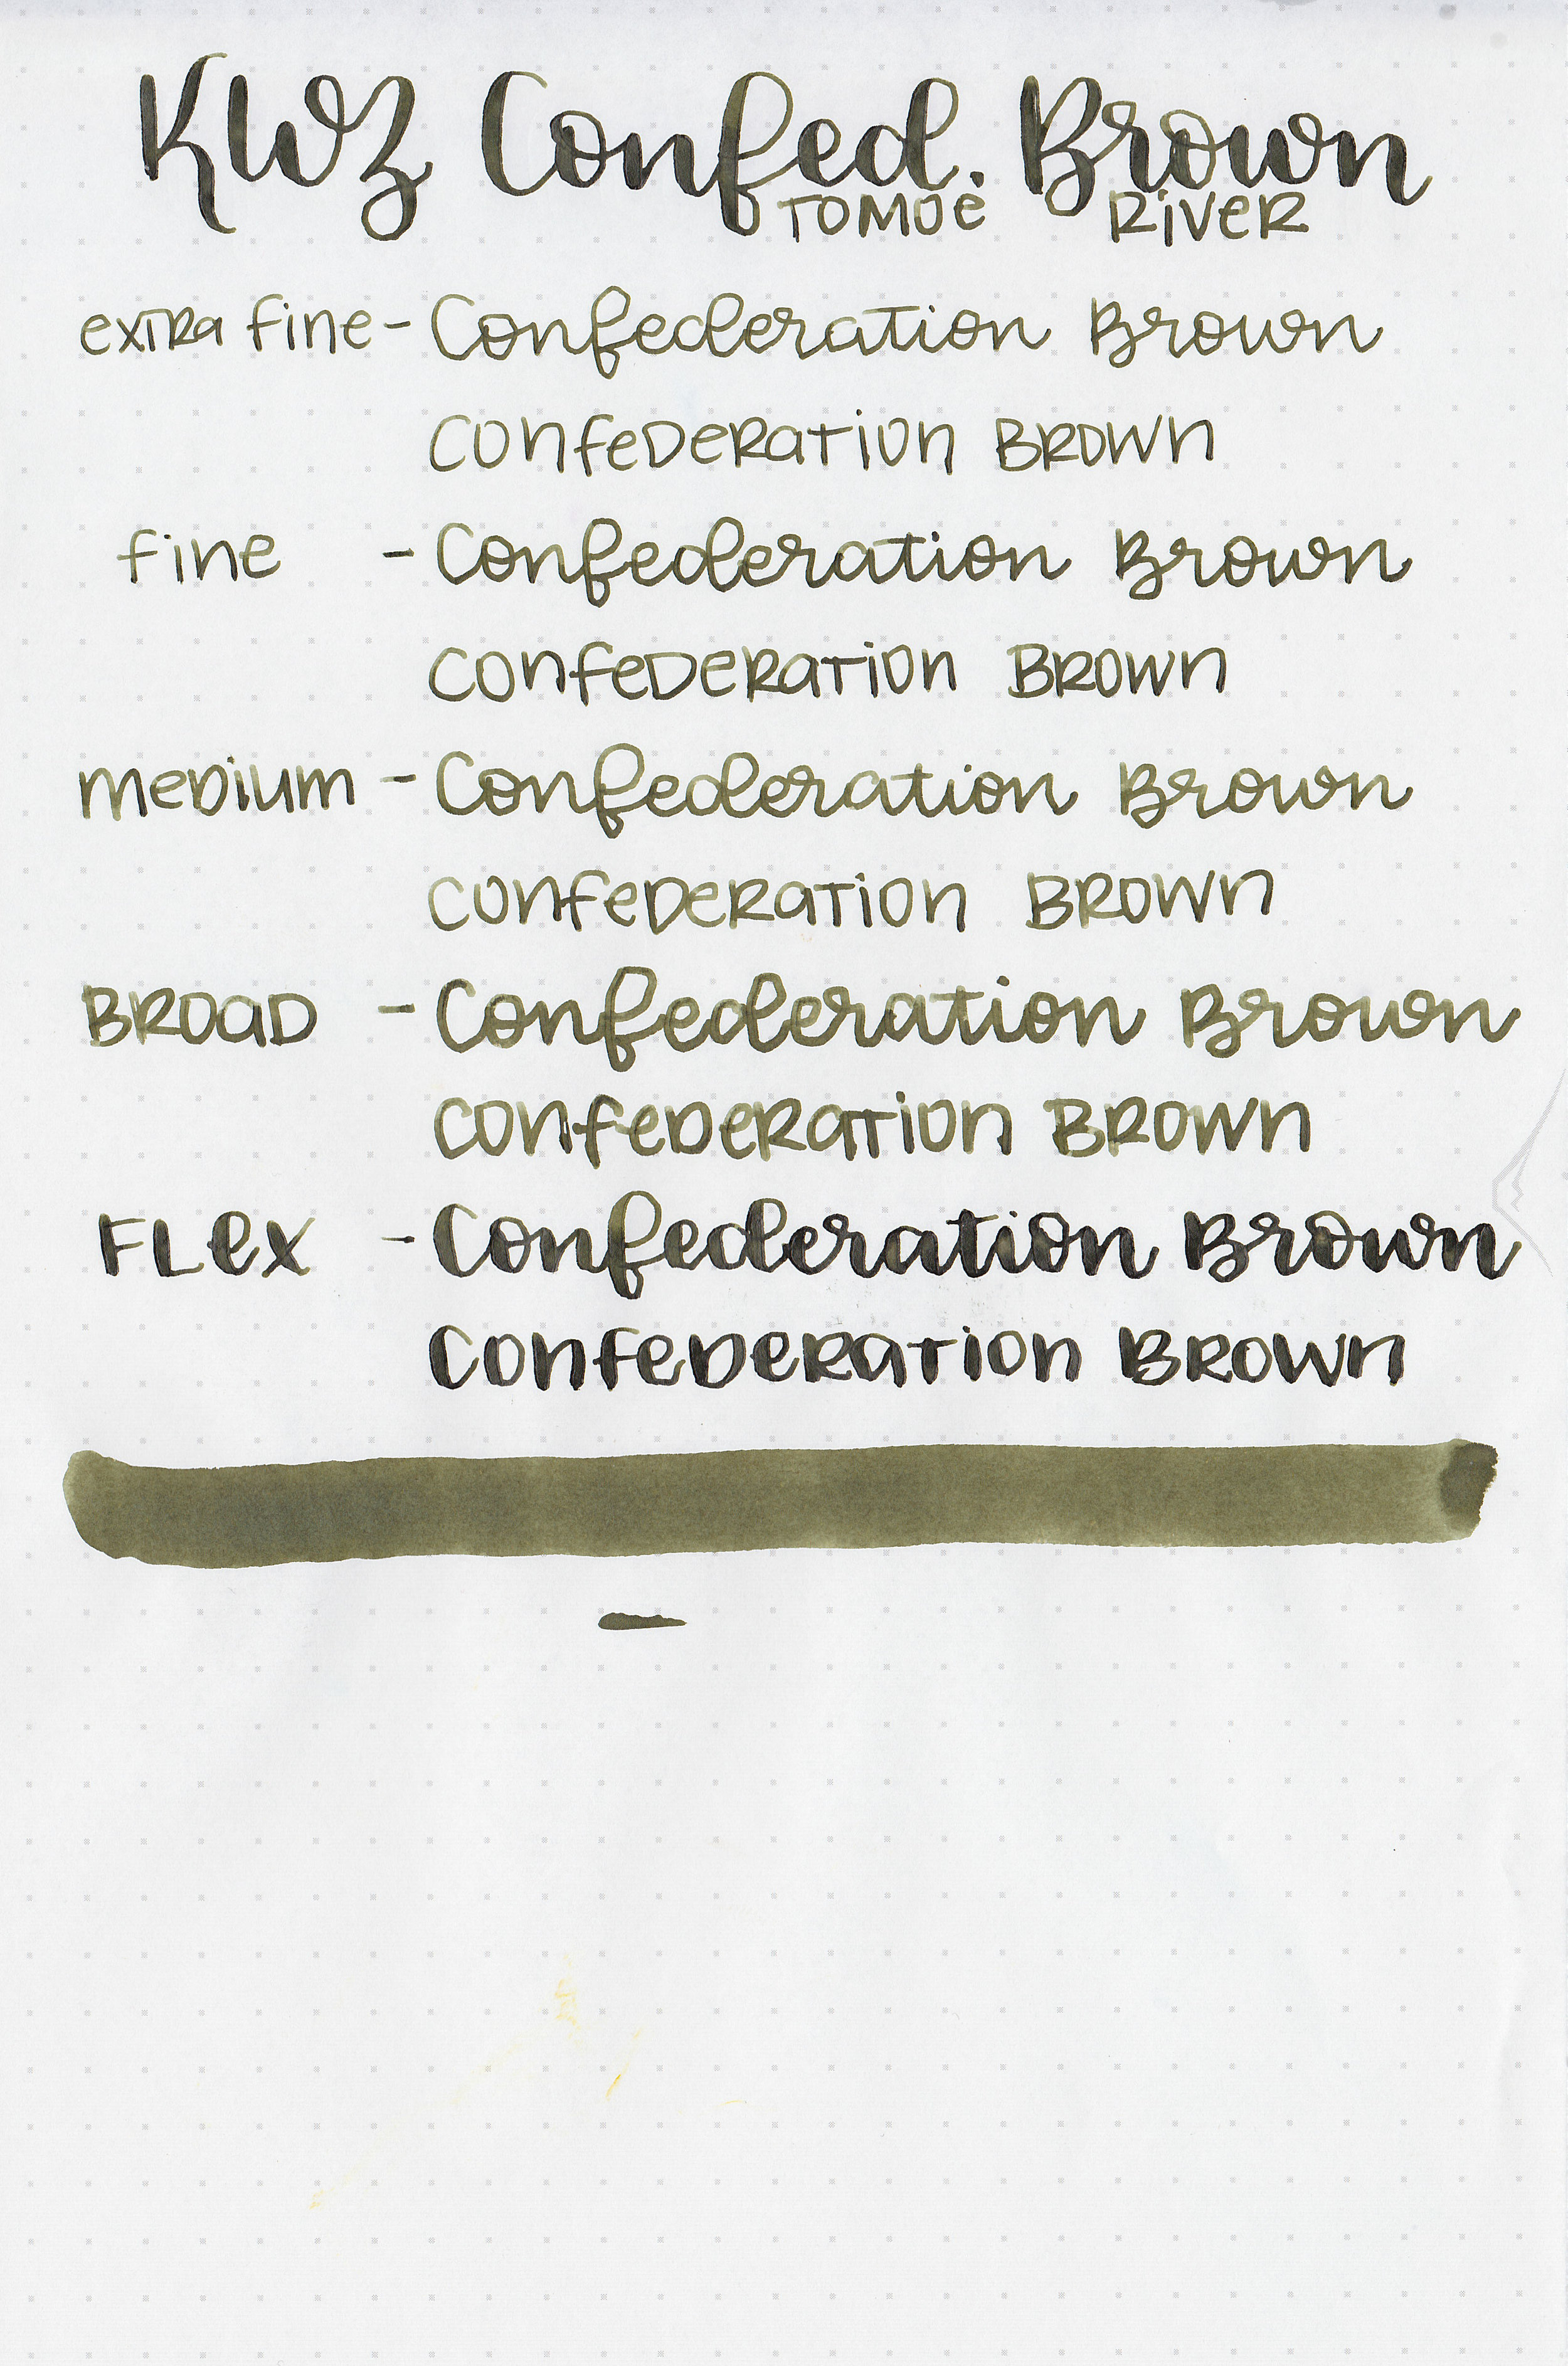 KWZ Confed. Brown
Tomoe River
extra fine - Confederation Brown
Confederation Brown
fine - Confederation Brown
Confederation Brown
medium - Confederation Brown
Confederation Brown
Broad - Confederation Brown
Confederation Brown
Flex - Confederation Brown
Confederation Brown